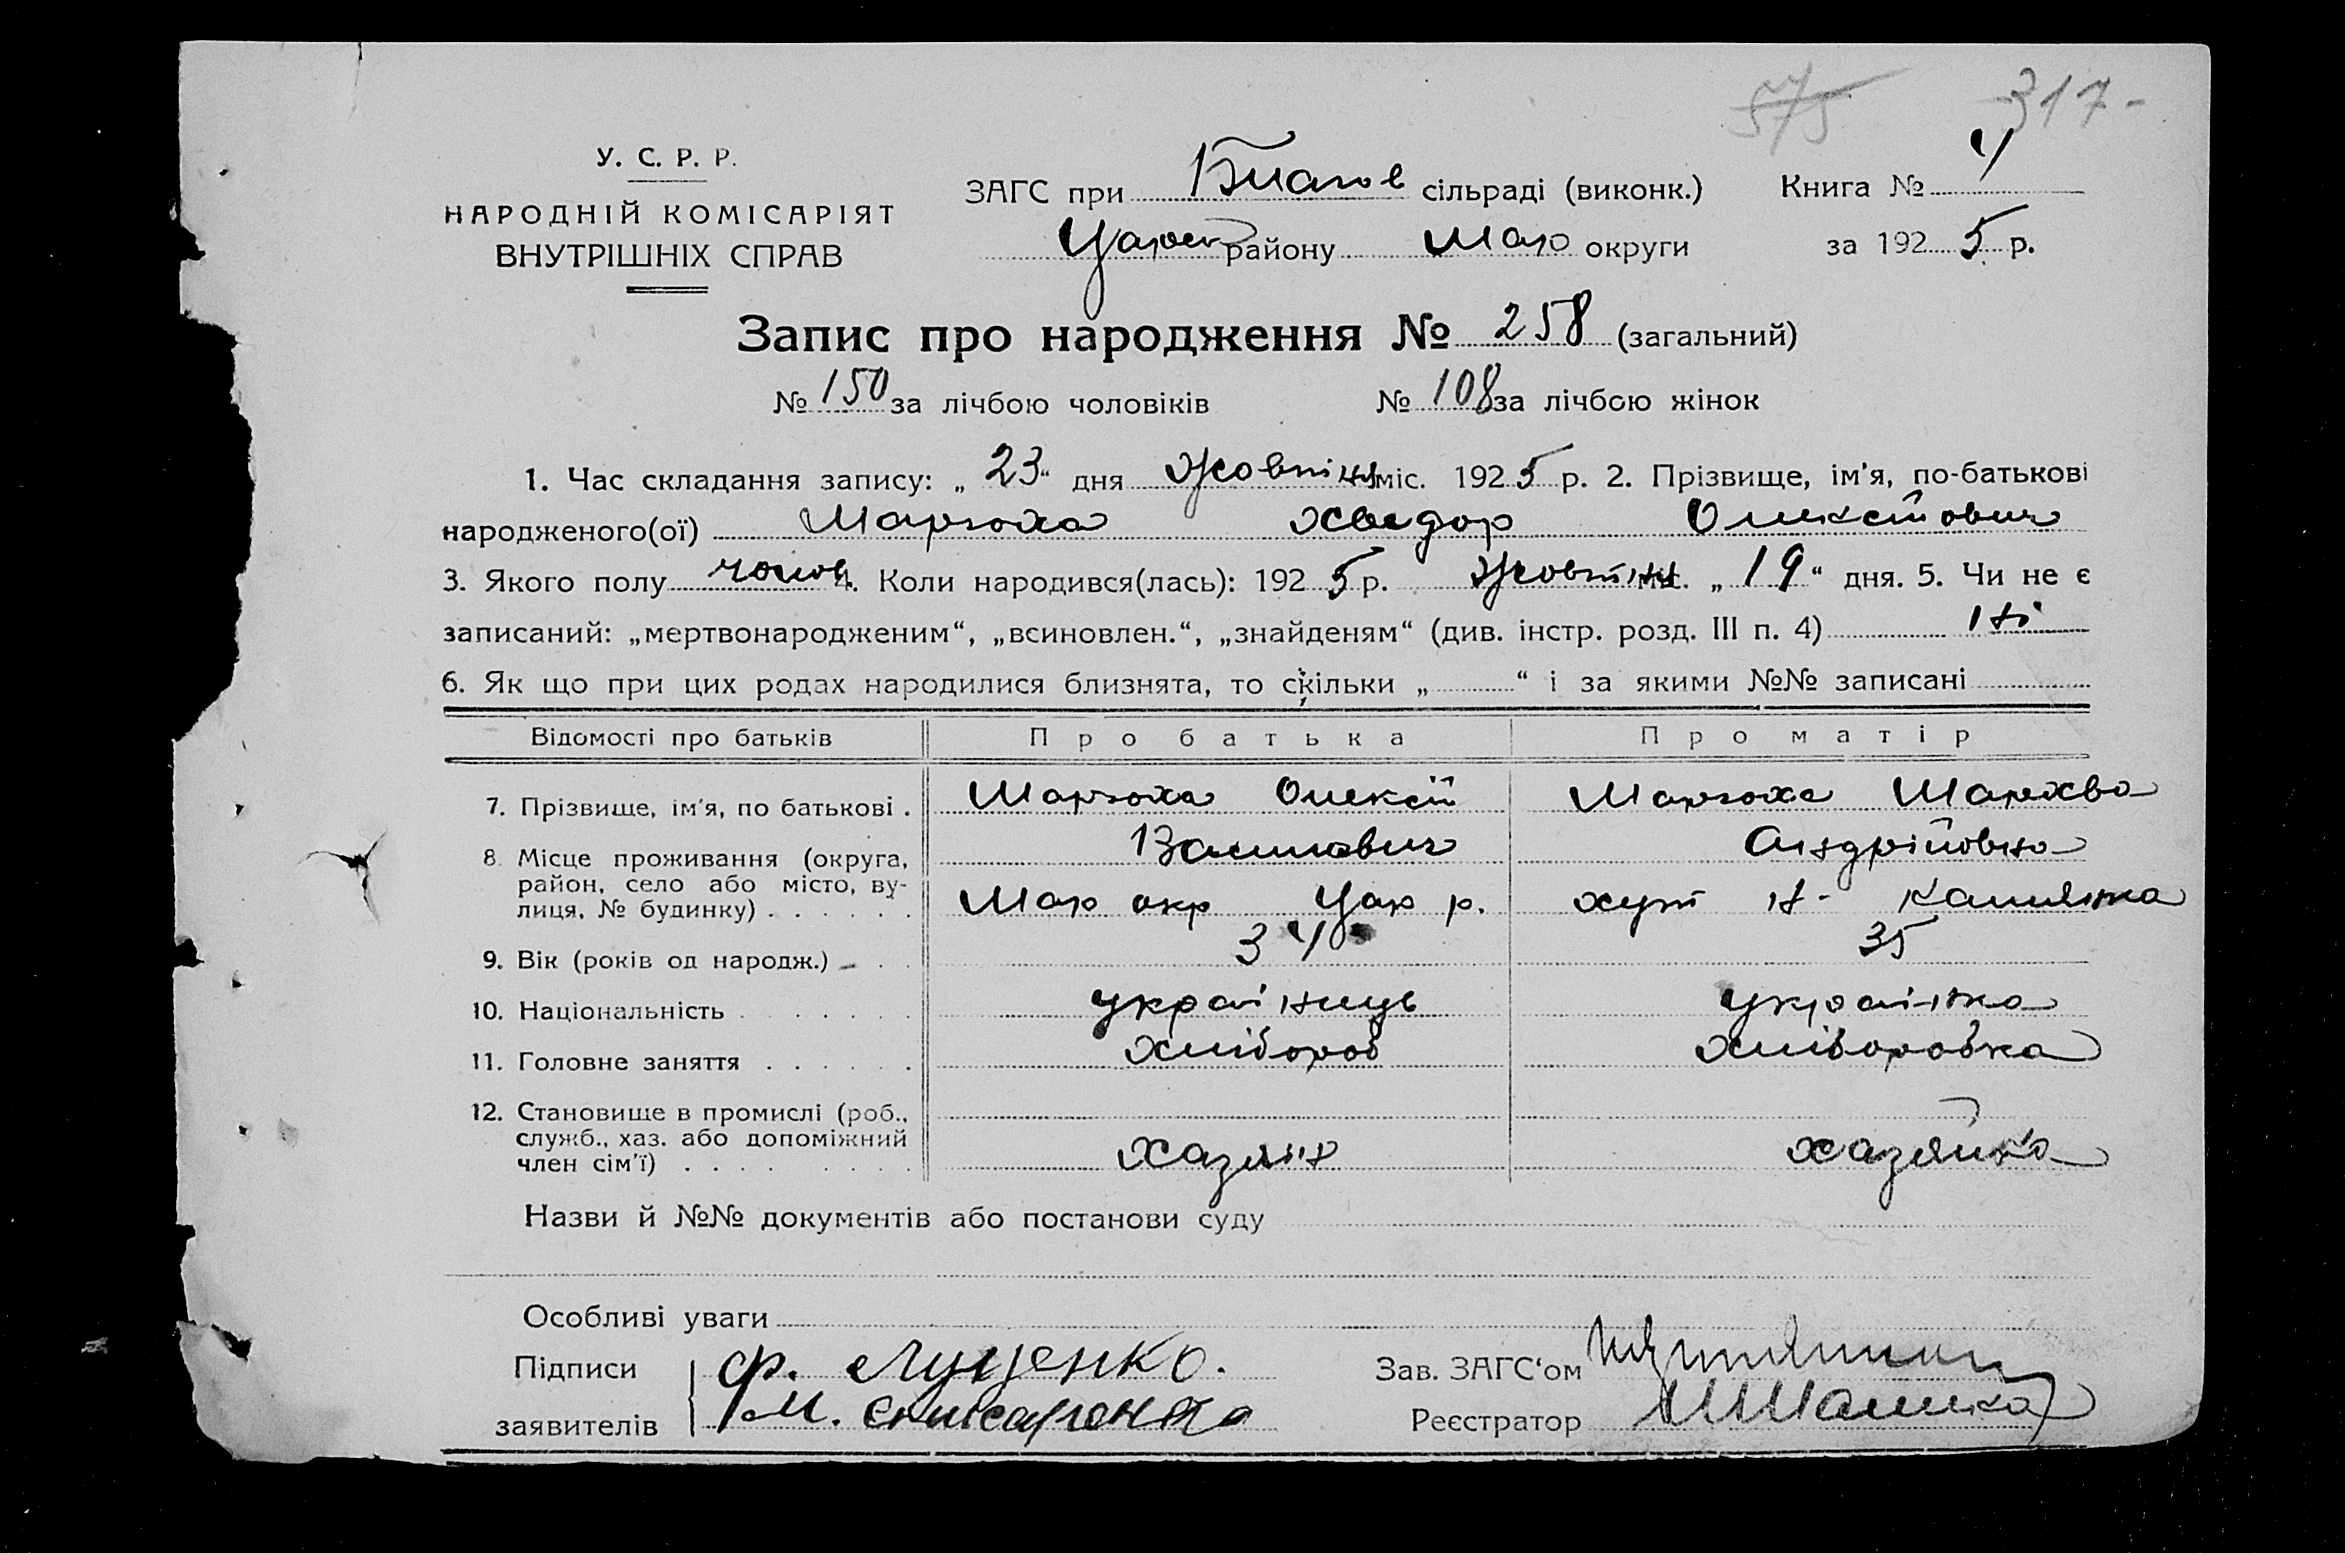 575 317-
У. С. Р. Р.
НАРОДНІЙ КОМІСАРІЯТ
ВНУТРІШНІХ СПРАВ
ЗАГС при Благов сільраді (виконк.) Книга № 4
Царек району Мар округи за 192 5 р.
Запис про народження № 258 (загальний)
№ 150 за лічбою чоловіків № 108 за лічбою жінок
1. Час складання запису: „ 23 “ дня жовтня міс. 192 5 р. 2. Прізвище, ім'я, по-батькові
народженого(ої) Маргоха Хведор Олексійович
3. Якого полу чолов. 4. Коли народився(лась): 192 5 р. жовтня міс. „ 19 “ дня. 5. Чи не є
записаний: „мертвонародженим“, „всиновлен.“, „знайденям“ (див. інстр. розд. III п. 4) ні
6. Як що при цих родах народилися близнята, то скільки „ “ і за якими №№ записані
Відомості про батьків Про батька Про матір
7. Прізвище, ім'я, по батькові . Маргоха Олексій Маргоха Мархва
Васильович Андрійовна
8. Місце проживання (округа,
район, село або місто, ву-
лиця, № будинку) . . . . . . Мар окр Цар р. хут Н- Камянка
9. Вік (років од народж.) . . 34 35
10. Національність . . . . . . українець українка
11. Головне заняття . . . . . . хлібороб хліборобка
12. Становище в промислі (роб.,
служб., хаз. або допоміжний
член сім'ї) . . . . . . . . хазяїн хазяйка
Назви й №№ документів або постанови суду
Особливі уваги
Підписи Ф. Луценко. Зав. ЗАГС‘ом
заявителів М. Реєстратор